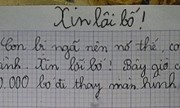 Xin lỗi bố!
Con bị ngã nên nó thế, co
ình. Xin lỗi bố! Bây giờ c
0.000 bố đi thay màn hình